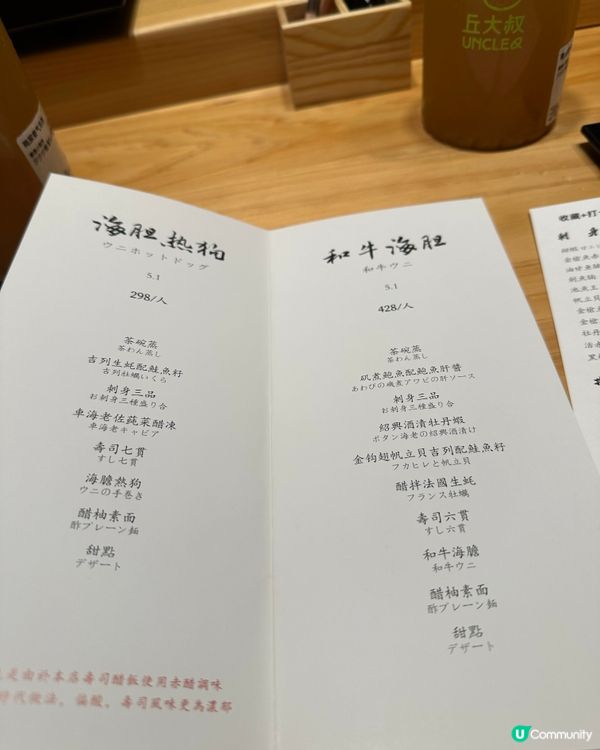 丘大叔
UNCLEQ
海胆热狗
ウニホットドッグ
5.1
298/人
茶碗蒸
茶わん蒸し
吉列生蚝配鮭魚籽
吉列牡蠣いくら
刺身三品
お刺身三種盛り合
車海老佐蒓菜醋凍
車海老キャビア
壽司七貫
すし七貫
海膽熱狗
ウニの手巻き
醋柚素面
酢プレーン麺
甜點
デザート
是由於本店壽司醋飯使用赤醋調味
時代做法，偏酸，壽司風味更為濃郁
和牛海胆
和牛ウニ
5.1
428/人
茶碗蒸
茶わん蒸し
矶煮鮑魚配鮑魚肝醬
あわびの磯煮アワビの肝ソース
刺身三品
お刺身三種盛り合
紹興酒漬牡丹蝦
ボタン海老の紹興酒漬け
金钩翅帆立貝吉列配鮭魚籽
フカヒレと帆立貝
醋拌法國生蚝
フランス牡蠣
壽司六貫
すし六貫
和牛海膽
和牛ウニ
醋柚素面
酢プレーン麺
甜點
デザート
收藏+打
刺身
U Community